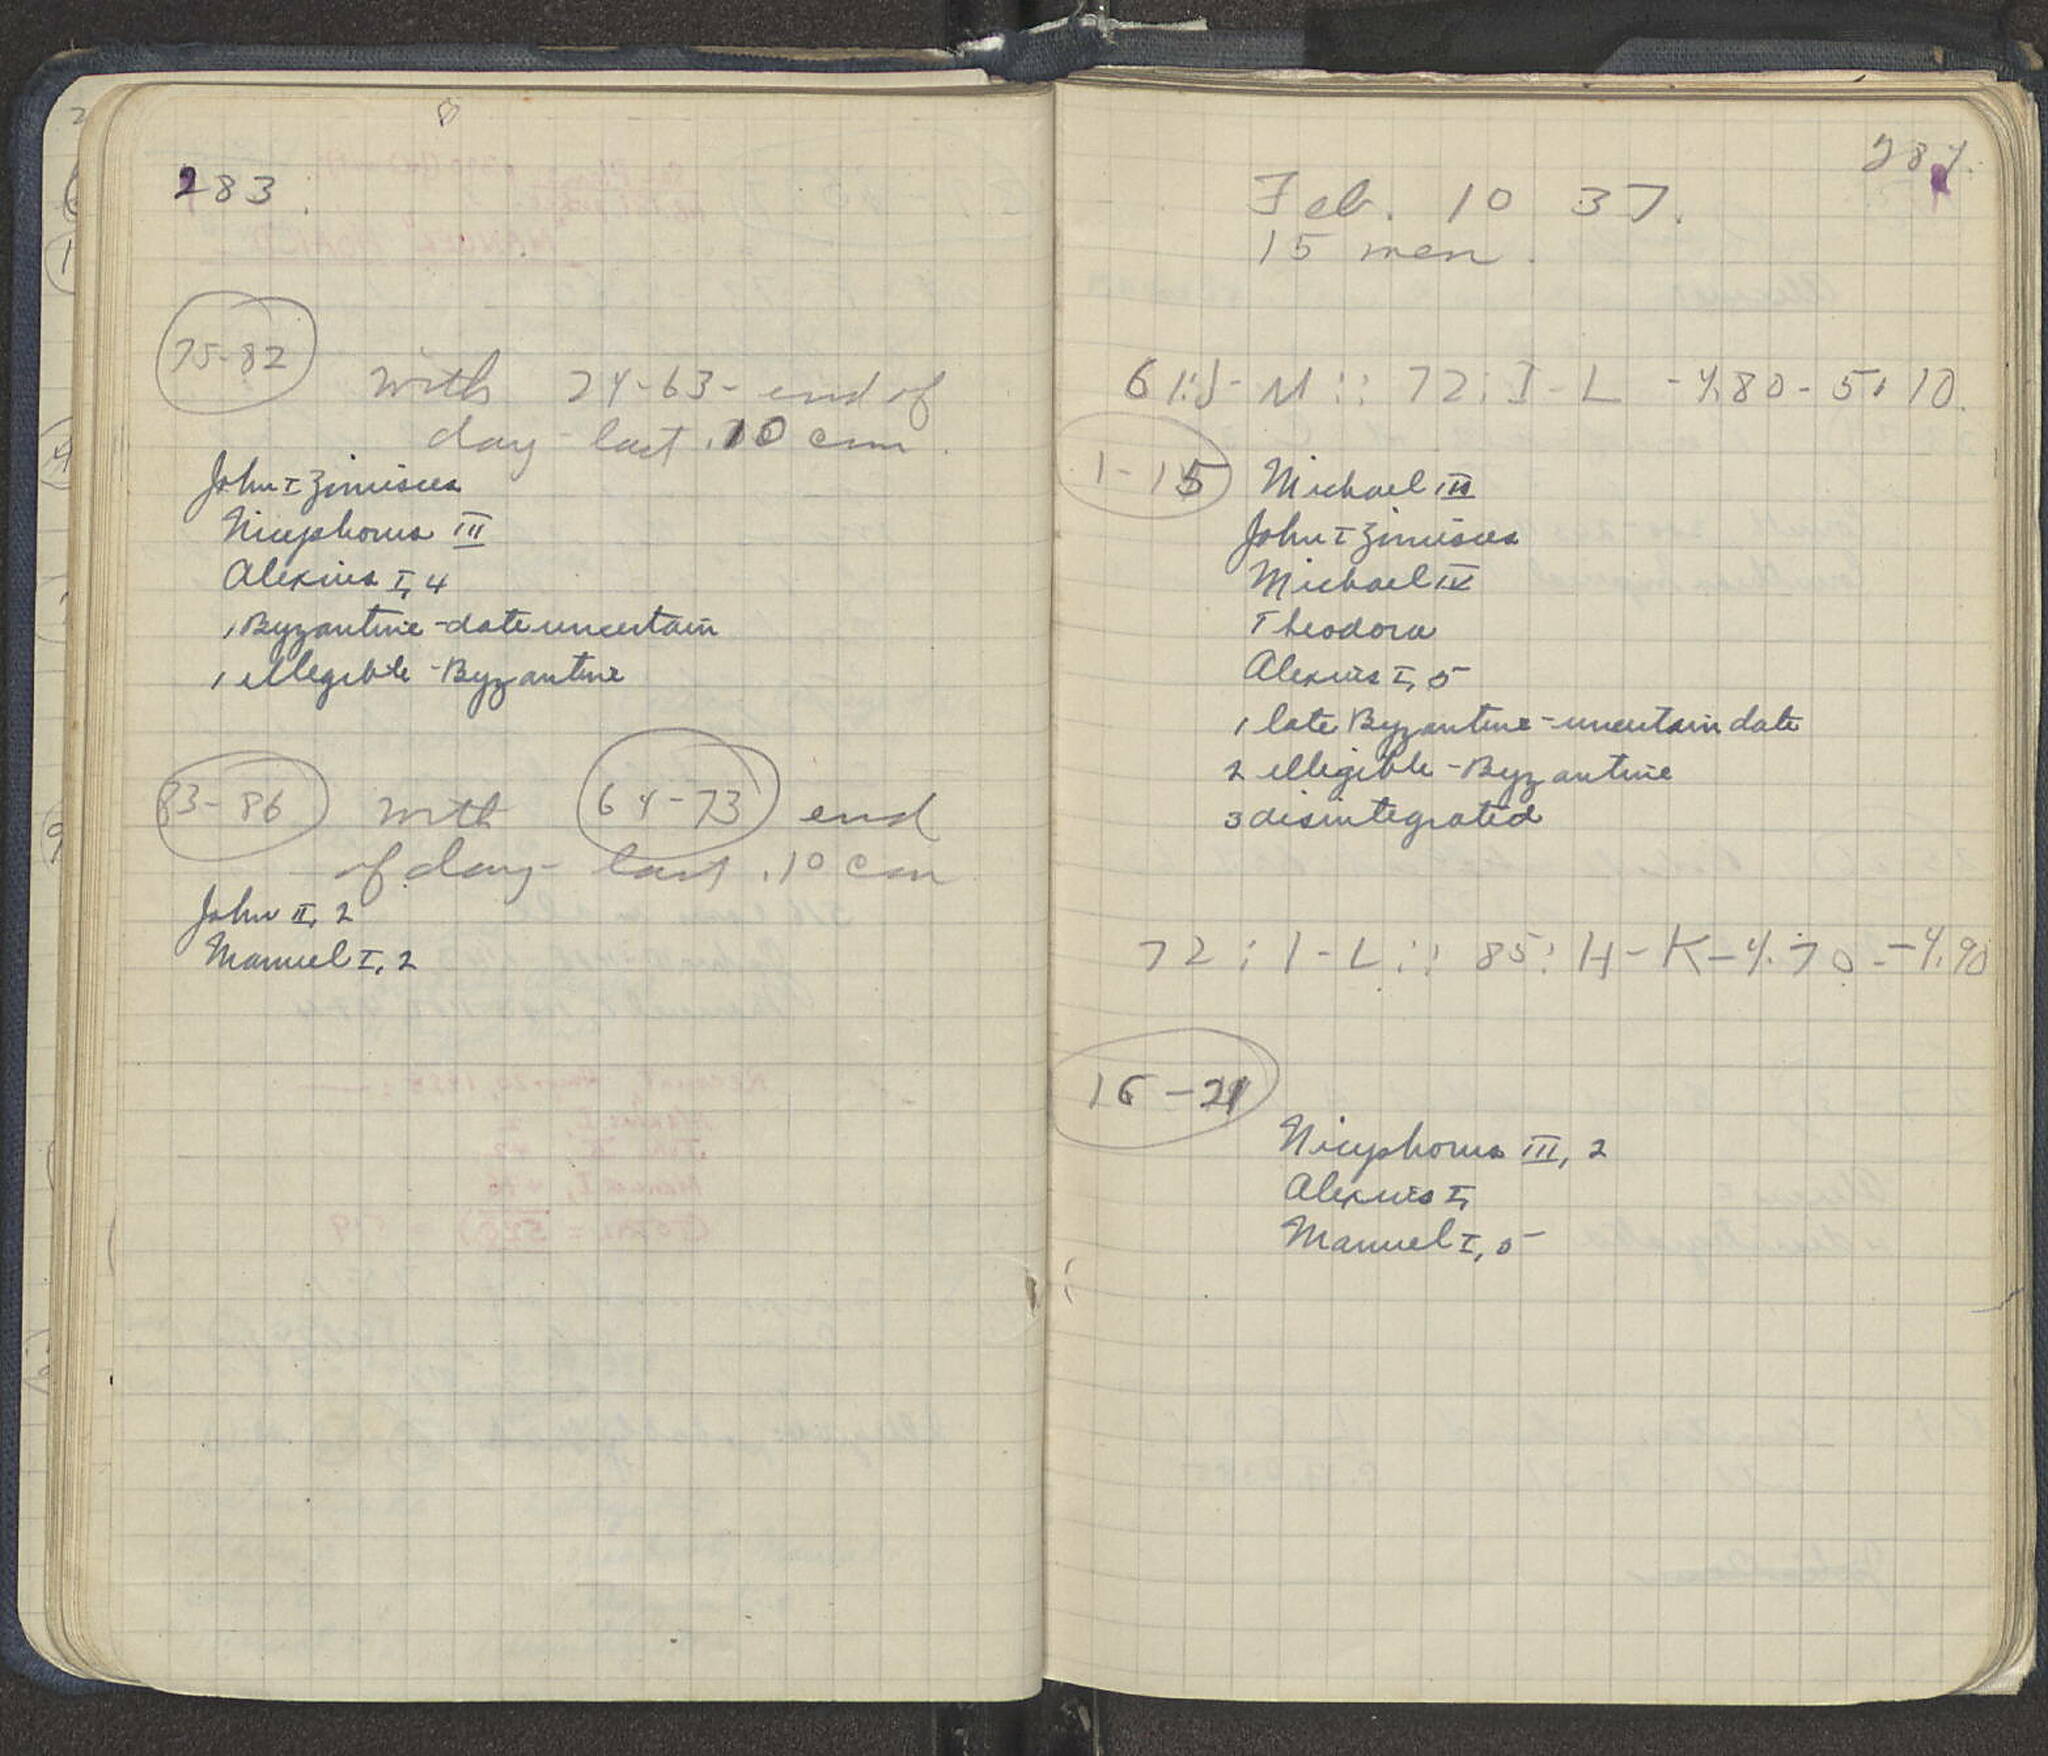 283
75-82
with 24-63- end of
day - last .10 cm.
John I Zimisces
Nicephorus III
Alexius I, 4
1 Byzantine - date uncertain
1 illegible - Byzantine
83-86 with 64-73 end
of day - last .10 cm
John II, 2
Manuel I, 2
Feb. 10 37.
15 men.
61:J-M :: 72:I-L -4.80-5.10.
1-15 Michael III
John I Zimisces
Michael IV
Theodora
Alexius I, 5
1 late Byzantine - uncertain date
2 illegible - Byzantine
3 disintegrated
72:I-L :: 85:H-K-4.70--4.90
16-21
Nicephorus III, 2
Alexius I,
Manuel I, 5